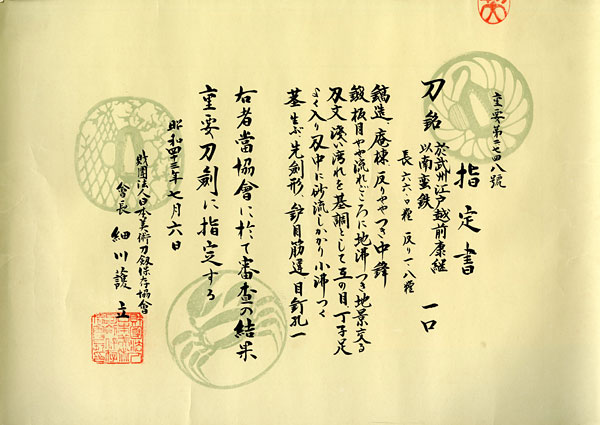 重要第二七四八號
指定書
刀 銘 於武州江戸越前康継 一口
以南蛮鉄
長 六六・〇糎 反り 一・八糎
鎬造、庵棟、反りやゝつき、中鋒
鍛 板目やや流れごころに地沸つき地景交る
刃文 浅い湾れを基調として互の目、丁子足
よく入り刃中に砂流しかかり小沸つく
茎 生ぶ、先剣形、鑢目筋違、目釘孔一
右者當協會に於て審査の結果
重要刀剣に指定する
昭和四十三年七月六日
財團法人日本美術刀剣保存協會
會長 細川護立